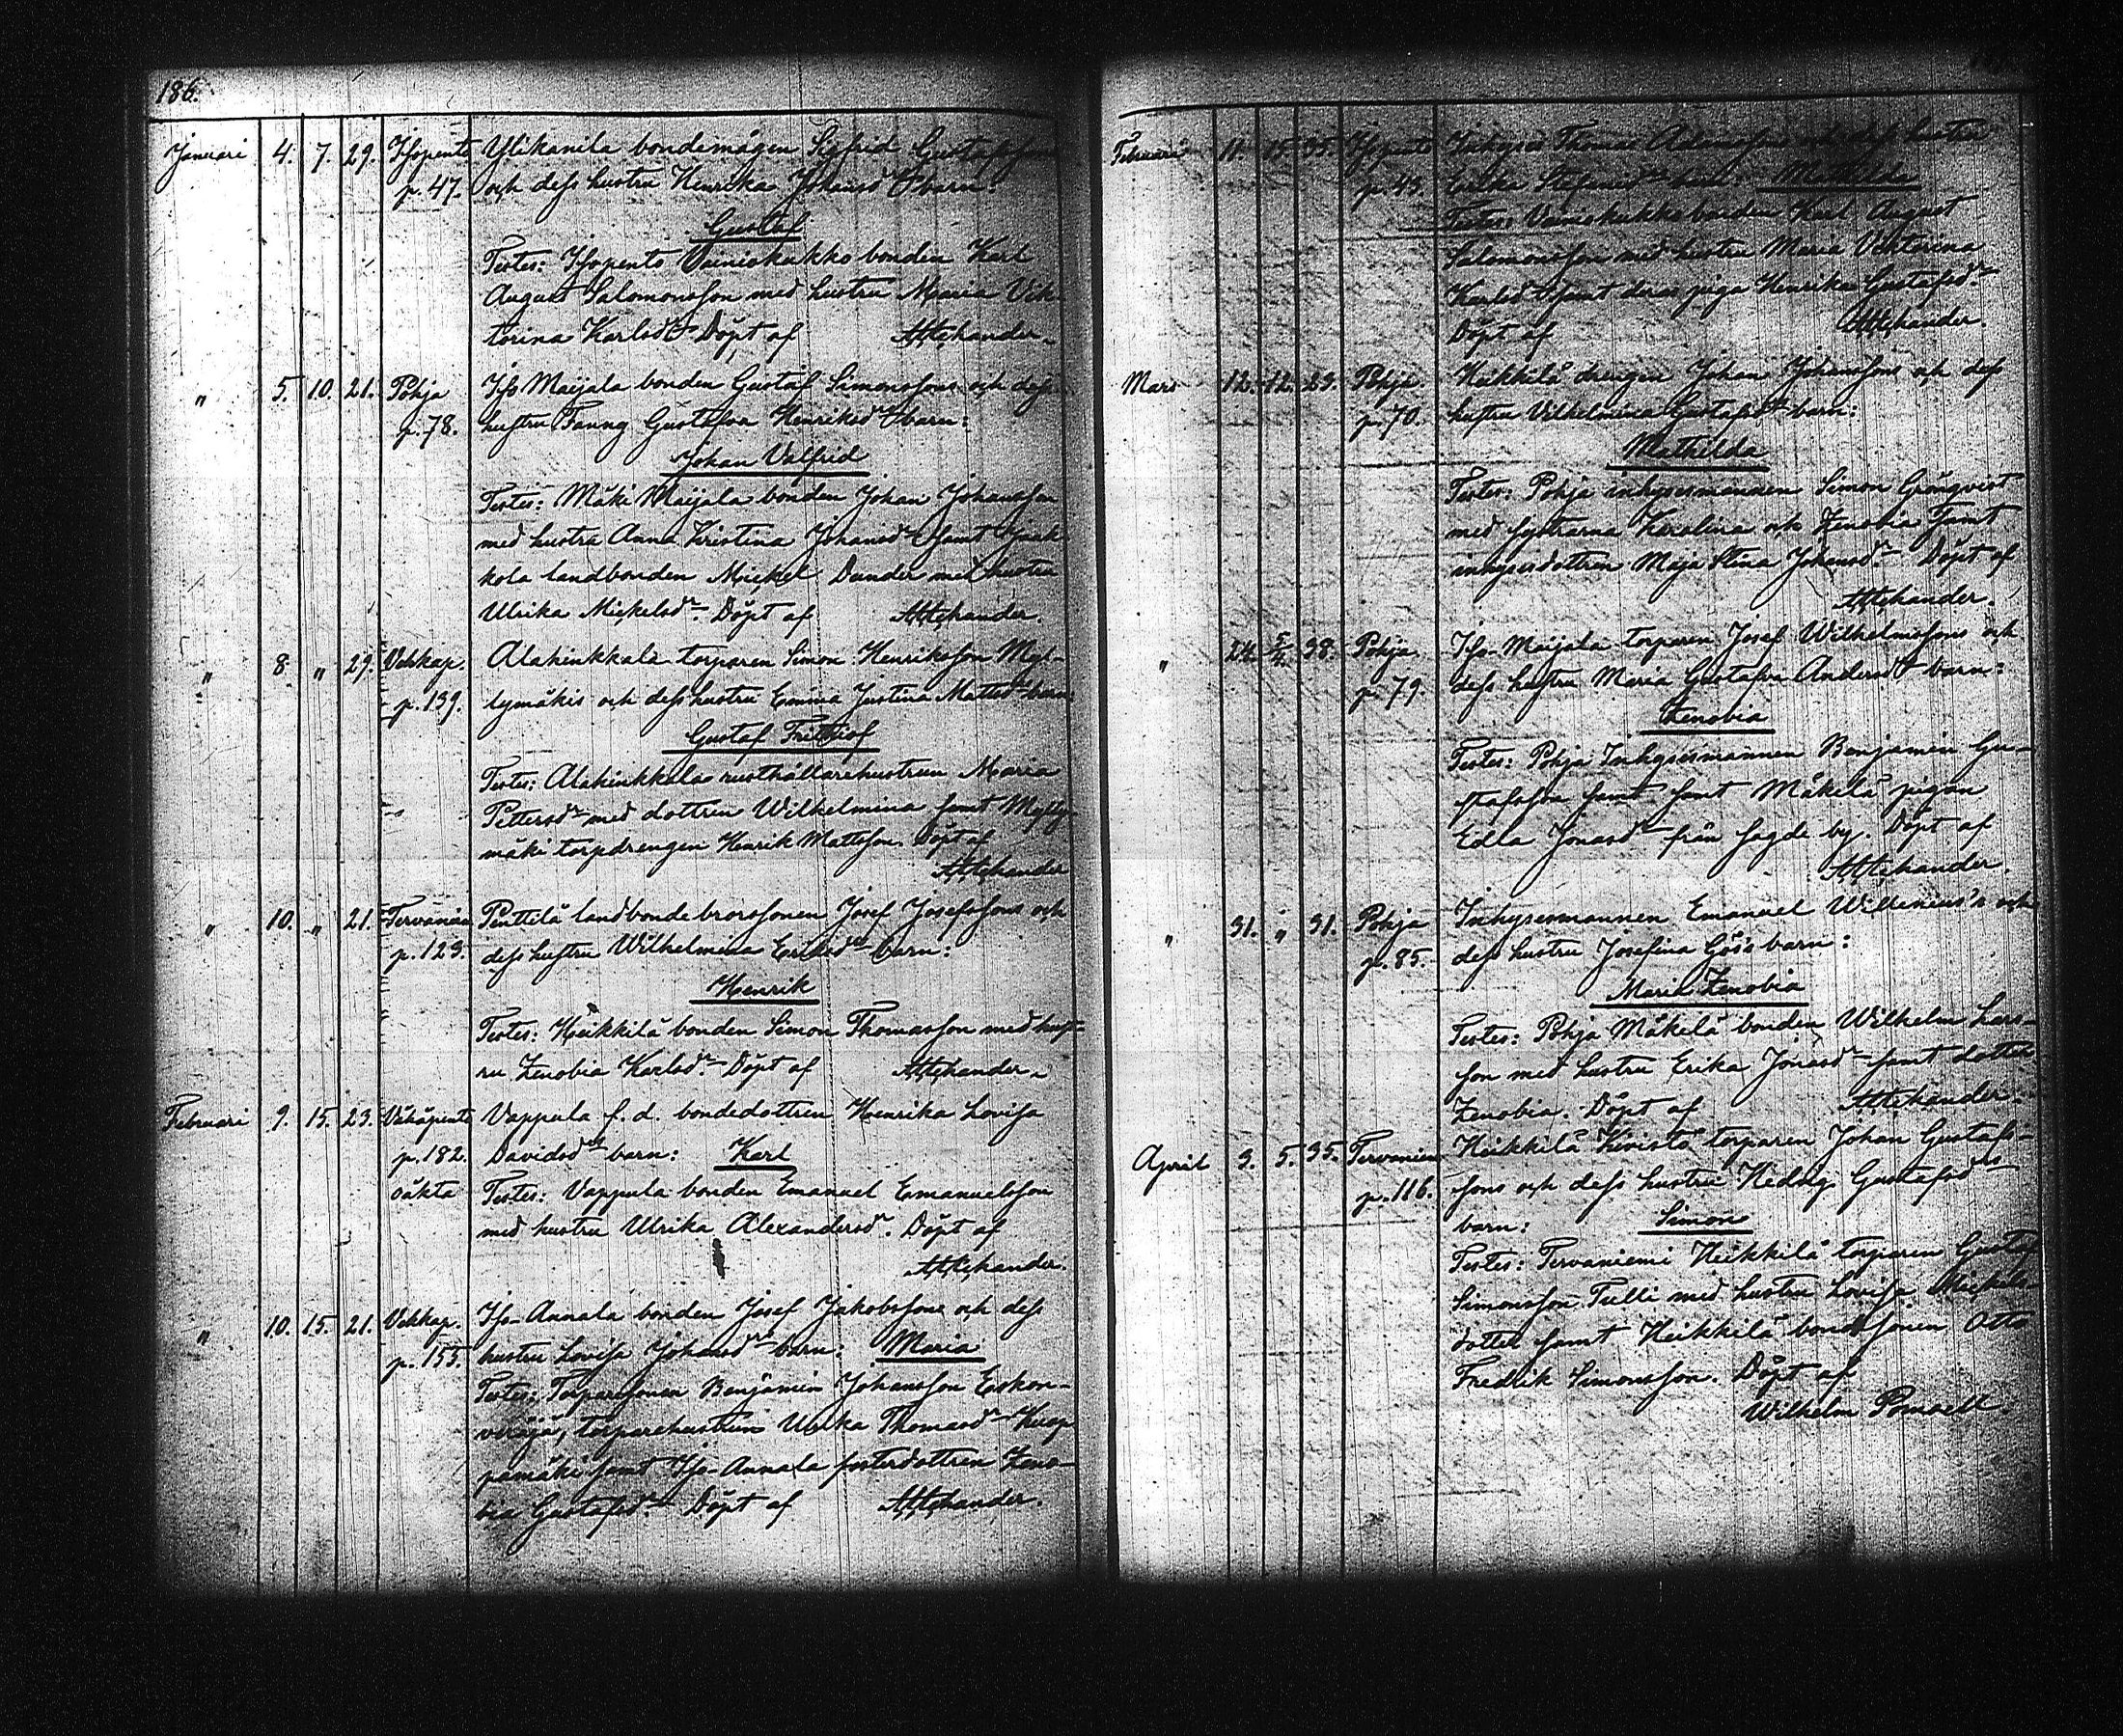 186.
Januari 4. 7. 29. Isopento Ylikanila bondemågen Sigfrid Gustafsson
p. 47. och dess hustru Henrika Johansdr barn:
Gustaf
Testes: Isopento Vainiokukko bonden Karl
August Salomonsson med hustru Maria Vik-
torina Karlsdr. Döpt af
" 5. 10. 21. Pohja Iso Maijala bonden Gustaf Simonssons och dess
p. 78. hustru Fanny Gustafva Henriksdr barn:
Johan Valfrid
Testes: Mäki Maijala bonden Johan Johansson
med hustru Anna Kristina Johansdr samt
kola landbonden Mickel Dander med hustru
Ulrika Mickelsdr. Döpt af
" 8. " 29. Vehkap. Alahinkkala torparen Simon Henriksson Myl-
p. 139. lymäkis och dess hustru Emma Justina Mattsdr barn:
Gustaf Frithiof
Testes: Alahinkkala rusthållarehustrun Maria
Pettersdr med dottren Wilhelmina samt Mylly-
mäki torpdrengen Henrik Mattsson. Döpt af
" 10. " 21. Tervaniemi Penttilä landbonde brorssonen Josef Josefssons och
p. 123. dess hustru Wilhelmina Eriksdr barn:
Henrik
Testes: Heikkilä bonden Simon Thomasson med hust-
ru Zenobia Karlsdr. Döpt af
Februari 9. 15. 23. Vähäpento Vappula f. d. bondedottren Henrika Lovisa
p. 182. Davidsdr barn: Karl
oäkta Testes: Vappula bonden Emanuel Emanuelsson
med hustru Ulrika Alexandersdr. Döpt af
" 10. 15. 21. Vehkap. Iso-Annala bonden Josef Jakobssons och dess
p. 155. hustru Lovisa Johansdr barn: Maria
Testes: Torparesonen Benjamin Johansson Eskon-
veräjä, torparehustrun Ulrika Thomasdr
pamäki samt Iso-Annala fosterdottren Zeno-
bia Gustafsdr. Döpt af
Februari 11. 15. 35. Isopento Inhyses Thomas Adamssons och dess hustru
p. 43. Erika Stefansdr barn: Mathilda
Testes: Vainiokukko bonden Karl August
Salomonsson med hustru Maria Viktorina
Karlsdr samt deras piga Henrika Gustafsdr.
Döpt af
Mars 12. 12. 23. Pohja Heikkilä drengen Johan Johanssons och dess
p. 70. hustru Vilhelmina Gustafsdr barn:
Mathilda
Testes: Pohja inhysesmannen Simon Grönqvist
med systrarna Karolina och Zenobia samt
inhysesdottren Maja Stina Johansdr. Döpt af
" 24. 5/4. 38. Pohja Iso-Maijala torparen Josef Wilhelmssons och
p. 79. dess hustru Maria Gustafva Andersdr barn:
Zenobia
Testes: Pohja Inhysesmannen Benjamin Gu-
stafsson samt samt Mäkelä pigan
Edla Jonasdr från sagde by. Döpt af
" 31. " 31. Pohja Inhysesmannen Emanuel Wilenius's och
p. 85. dess hustru Josefina Göös barn:
Maria Zenobia
Testes: Pohja Mäkelä bonden Wilhelm Lars-
son med hustru Erika Jonasdr samt dotter
Zenobia. Döpt af
April 3. 5. 35. Tervaniemi Heikkilä Kivistö torparen Johan Gustafs-
p. 116. sons och dess hustru Hedvig Gustafsdrs
barn: Simon
Testes: Tervaniemi Heikkilä torparen Gustaf
Simonsson Tulli med hustru Lovisa Mickels-
dotter samt Heikkilä bondesonen Otto
Fredrik Simonsson. Döpt af
Wilhelm Ponsell.